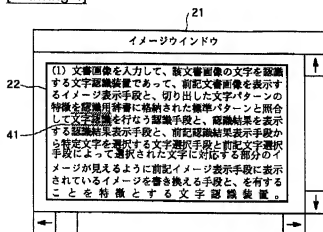 21
イメージウインドウ
22
41
(1) 文書画像を入力して、該文書画像の文字を認識
する文字認識装置であって、前記文書画像を表示す
るイメージ表示手段と、切り出した文字パターンの
特徴を認識用辞書に格納された標準パターンと照合
して文字認識を行なう認識手段と、認識結果を表示
する認識結果表示手段と、前記認識結果表示手段か
ら特定文字を選択する文字選択手段と前記文字選択
手段によって選択された文字に対応する部分のイ
メージが見えるように前記イメージ表示手段に表示
されているイメージを書き換える手段と、を有する
ことを特徴とする文字認識装置。